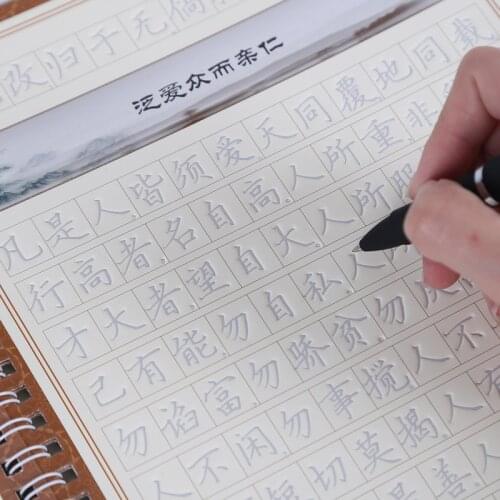 改归于无倘
泛爱众而亲仁
凡是人皆须爱天同覆地同载
行高者名自高人所重非
才大者望自大人所服
己有能勿自私人
勿谄富勿骄贫勿厌
人不闲勿事搅人不
短切莫揭人
善